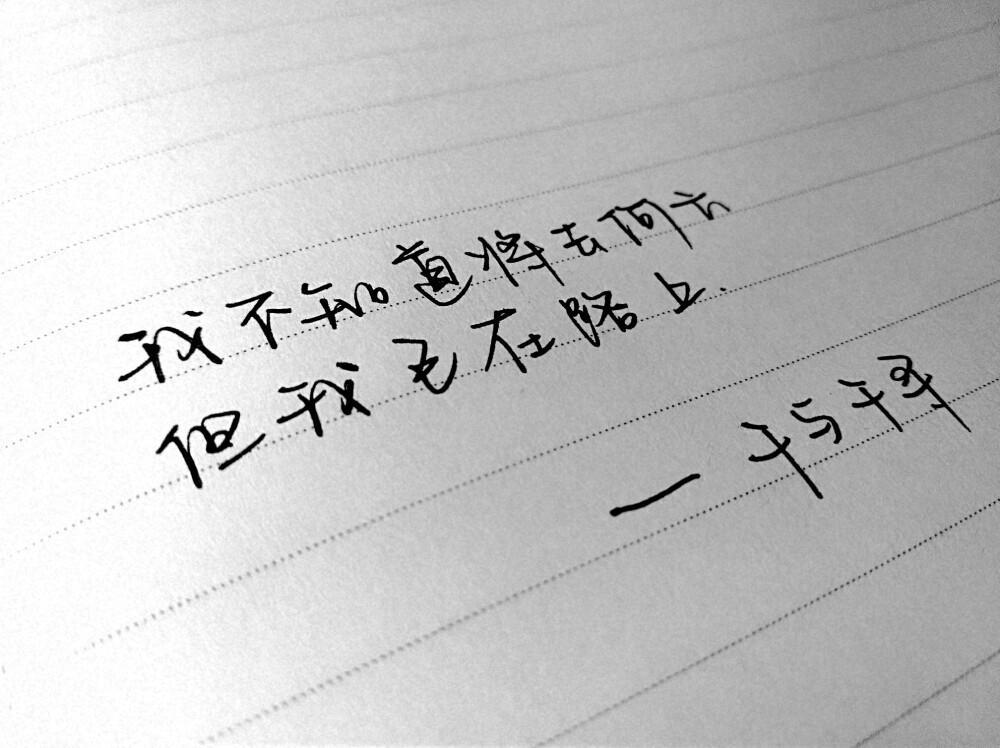 我不知道将去何方
但我已在路上.
—千与千寻